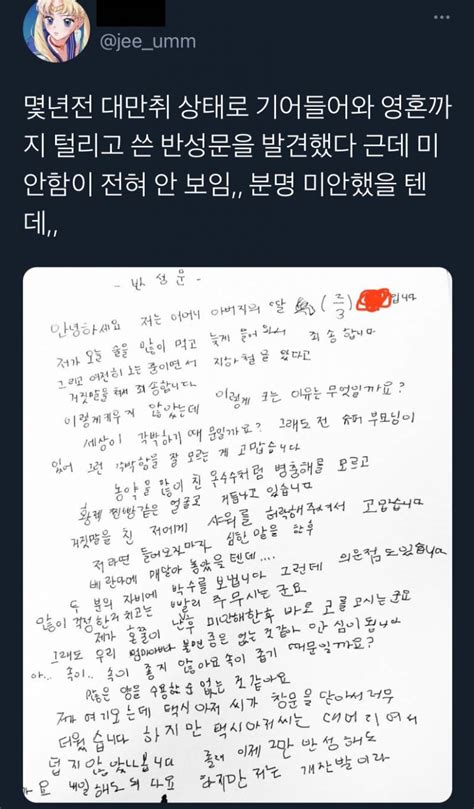 @jee_umm
몇년전 대만취 상태로 기어들어와 영혼까
지 털리고 쓴 반성문을 발견했다 근데 미
안함이 전혀 안 보임,, 분명 미안했을 텐
데,,
- 반성문 -
안녕하세요 저는 어머니 아버지의 딸 (2/3) 입니다
제가 오늘 술을 많이 먹고 늦게 들어와서 죄송합니다
그리고 여전히 오는 중이면서 지하철을 탔다고
거짓말을 해서 죄송합니다
이렇게 키우지 않았는데 이렇게 크는 이유는 무엇일까요?
세상이 각박하기 때문일까요? 그래도 전 슈퍼 부모님이
있어 그런 각박함을 잘 모르는 게 고맙습니다
농약을 많이 친 옥수수처럼 병충해를 모르고
황제 찐빵같은 얼굴로 거듭나고 있습니다
거짓말을 친 저에게 샤워를 허락해주셔서 고맙습니다
저라면 들어오지마라 심한 말을 한후
베란다에 매달아 놓았을텐데....
두 분의 자비에 박수를 보냅니다 그런데 의문점도 있습니다
많이 걱정한거 치고는 빨리 주무시는군요
제가 혼쭐이 난후 미안해한후 바로 코를 고시는군요
그래도 우리 엄마아빠 불면증은 없는것같아 안심이 됩니다
아.. 속이.. 속이 좋지 않아요 속이 좁기 때문일까요?
많은 양을 수용할 순 없는 것 같아요
제가 여기오는데 택시아저씨가 창문을 닫아서 너무
더웠습니다 하지만 택시아저씨는 대머리여서
덥지 않았나봅니다 졸려 이제 그만 반성해도
내일 해도 되나요 하지만 저는 개찬발이라